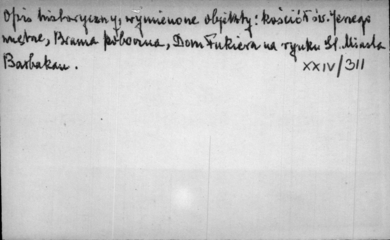 Opis historyczny, wymienione objekty: kościół św. Jerzego
wnętrze, Brama poboczna, Dom Fukiera na rynku St. Miasta
Barbakan.
XXIV/311